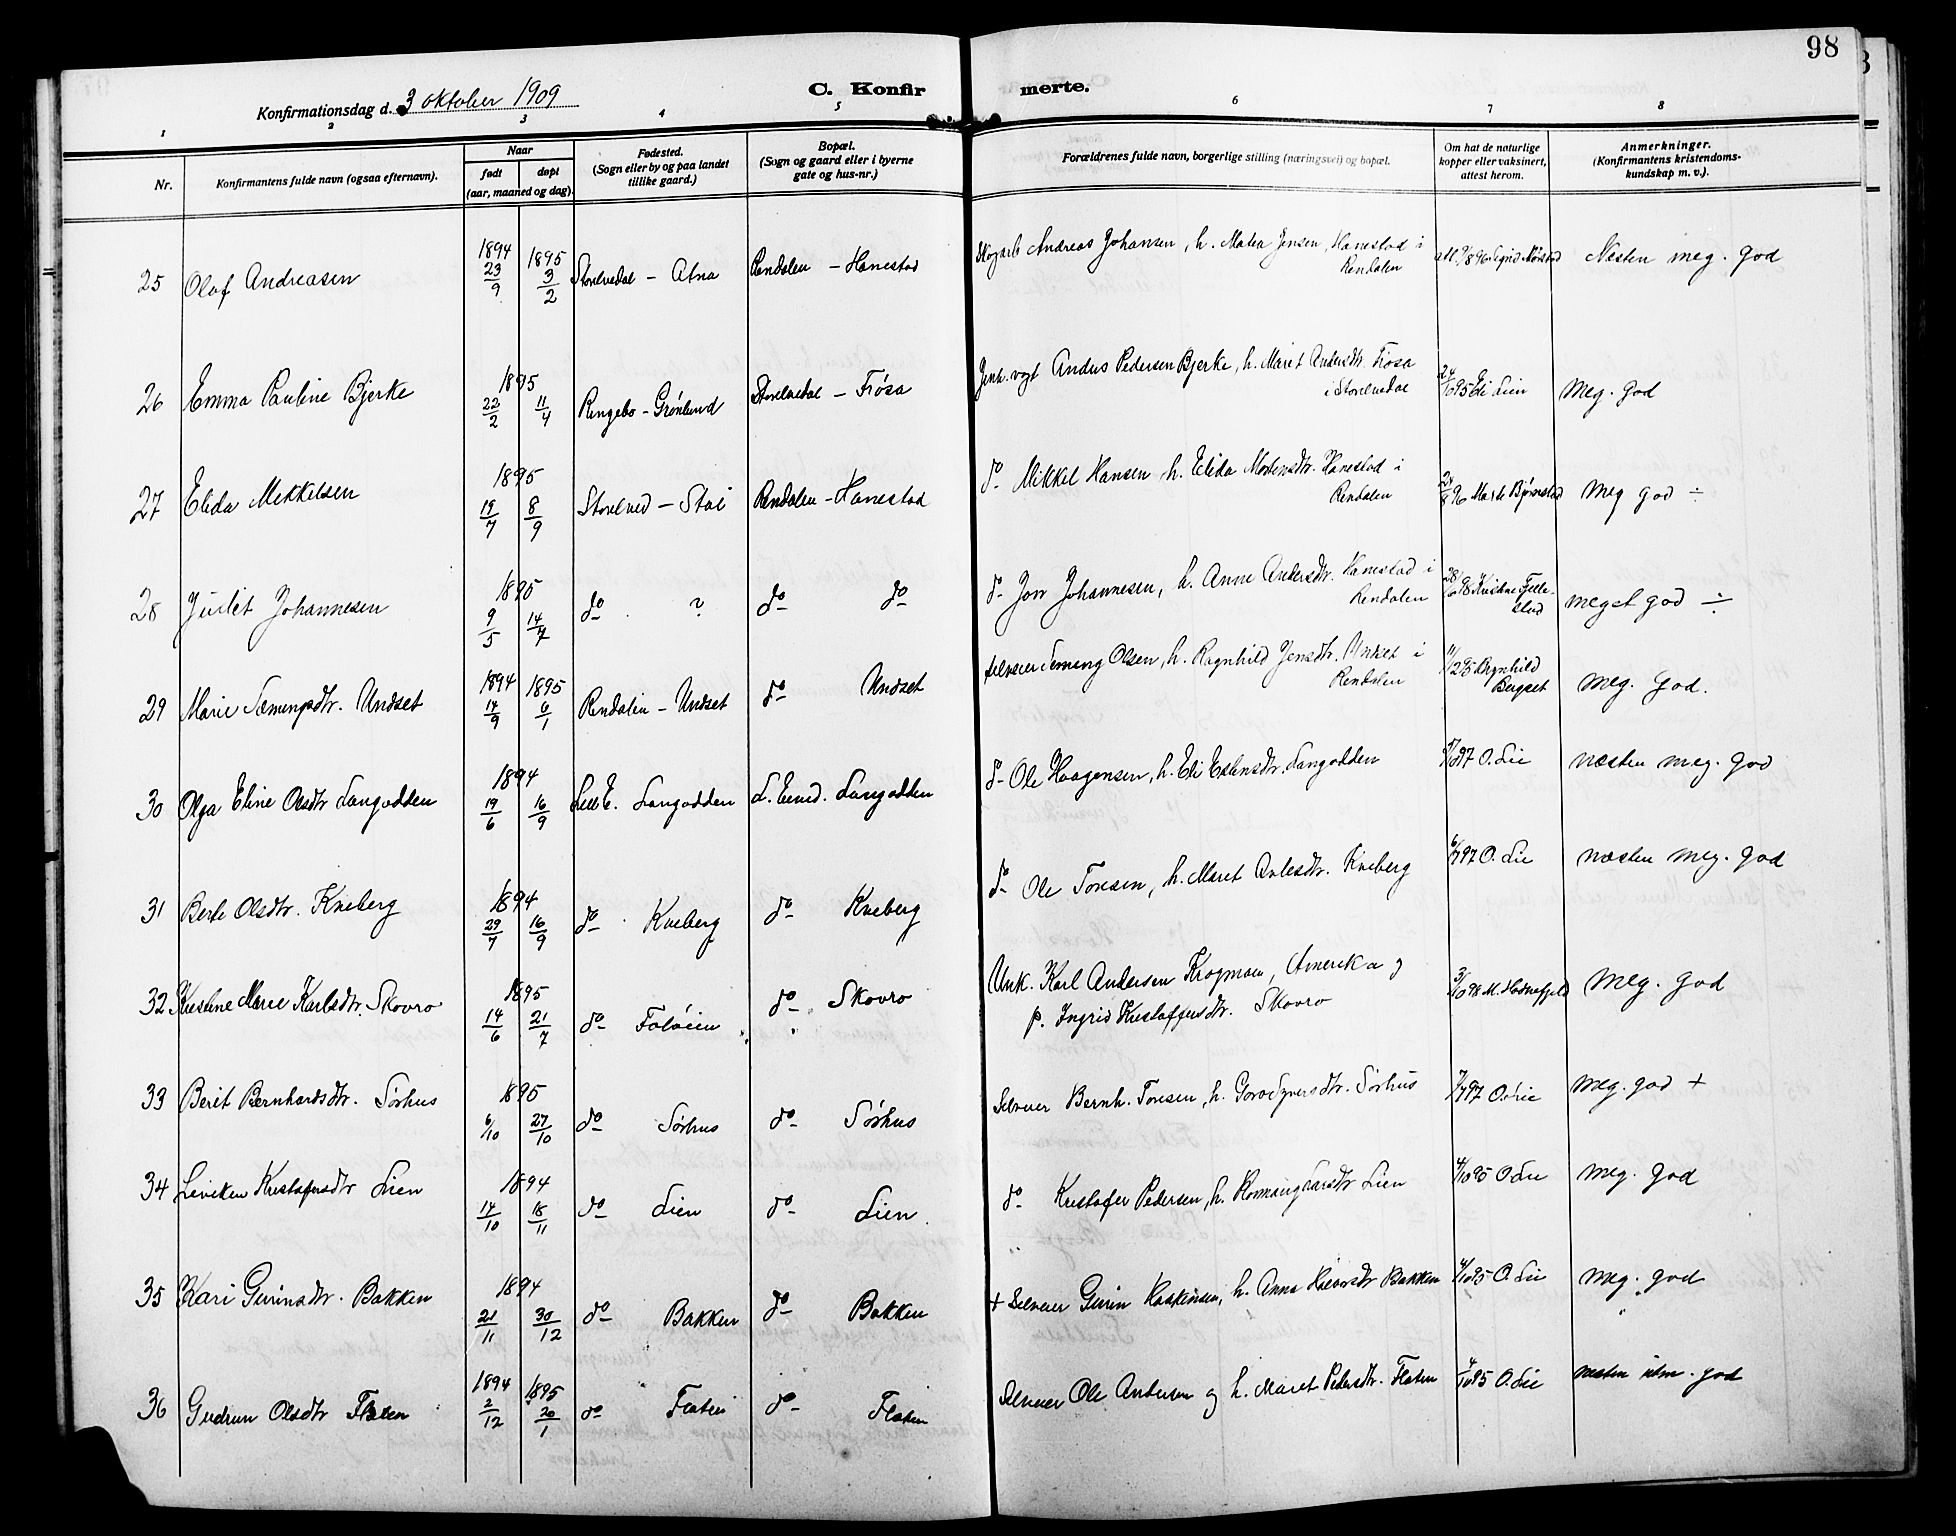 98
Konfirmationsdag d. 3 oktober 1909
C. Konfirmerte.
1 2 3 4 5 6 7 8
Nr.
Konfirmantens fulde navn (ogsaa efternavn).
Naar
født
døpt
(aar, maaned og dag).
Fødested.
(Sogn eller by og paa landet
tillike gaard.)
Bopæl.
(Sogn og gaard eller i byerne
gate og hus-nr.)
Forældrenes fulde navn, borgerlige stilling (næringsvei) og bopæl.
Om hat de naturlige
kopper eller vaksinert,
attest herom.
Anmerkninger.
(Konfirmantens kristendoms-
kundskap m. v.).
25 Olaf Andreasen 1894 23/9 1895 3/2 Storelvedal - Atna Rendalen - Hanestad Andreas Johansen, h. Matea Jensen, Hanestad i Rendalen Næsten meg. god
26 Emma Pauline Bjerke 1895 22/2 11/4 Ringebo - Grønlund Storelvedal - Frøsa Pedersen Bjerke, h. Maret Andersdtr. Frøsa i Storelvedal 24/10 95 Eli Lien Meg. god
27 Elida Mikkelsen 1895 19/7 8/9 Storelved - Stai Rendalen - Hanestad do Mikkel Hansen h. Elida Mortensdtr. Hanestad i Rendalen 24/8 96 Marte Bjørnstad meg god ÷
28 Johannesen 1895 9/5 14/7 do ? do do do Jon Johannesen, h. Anne Andersdtr. Hanestad i Rendalen meget god ÷
29 Marie Semingsdtr. Undset 1894 14/9 1895 6/1 Rendalen - Undset do Undset selveier Seming Olsen, h. Ragnhild Jensdtr. Unset i Rendalen 11/12 95 Ragnhild Berget meg. god.
30 Olga Eline Olsdtr Langodden 1894 19/6 16/9 Lille E. Langodden L. Elved. Langodden do Ole Haagensen, h. Eli Estensdtr. Langodden 97 O. Lie næsten meg. god
31 Berte Olsdtr. Kveberg 1894 29/7 16/9 do Kveberg do Kveberg do Ole Toresen, h. Maret Kveberg 6/7 97 O. Lie næsten meg. god
32 Kristine Marie Karlsdtr. Skovro 1895 14/6 21/7 do Foløien do Skovro Unk. Karl Andersen Krogmoen, Amerika og
p. Ingrid Kristoffersdtr. Skovro 3/10 98 M. Meg. god
33 Berit Bernhardsdtr. Sørhus 1895 6/10 27/10 do Sørhus do Sørhus Selveier Bernh. Toresen, h. Sørhus 7/7 97 O. Lie meg. god +
34 Kristofersdtr Lien 1894 14/10 18/11 do Lien do Lien. do Kristofer Pedersen, h. Lien 4/10 95 O. Lie meg. god
35 Kari Bakken 1894 21/11 30/12 do Bakken do Bakken + Selveier h. Anna Bakken 4/10 95 O. Lie meg. god
36 Gudrun Olsdtr Flaten 1894 2/12 1895 20/1 do Flaten do Flaten Selveier Ole Andersen og h. Maret Pedersdtr. Flaten 4/10 95 O. Lie næsten god